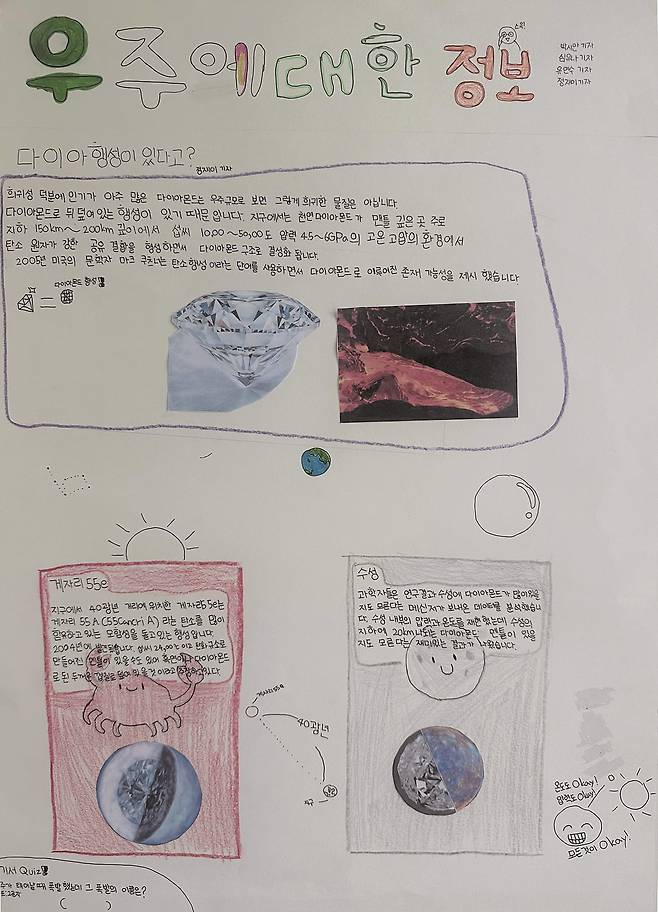 우주에대한 정보
스윗!
박시안 기자
심유나 기자
유연수 기자
정재이 기자
다이아 행성이 있다고?
정재이 기자
희귀성 덕분에 인기가 아주 많은 다이아몬드는 우주규모로 보면 그렇게 희귀한 물질은 아닙니다.
다이아몬드로 뒤덮여 있는 행성이 있기 때문입니다. 지구에서는 천연 다이아몬드가 맨틀 깊은 곳 주로
지하 150km~200km 깊이에서 섭씨 10,00~50,00도 압력 4.5~6GPa의 고온 고압의 환경에서
탄소 원자가 강한 공유 결합을 형성하면서 다이아몬드 구조로 결성화 됩니다.
2005년 미국의 문학자 마크 쿠츠너는 탄소행성이라는 단어를 사용하면서 다이아몬드로 이루어진 존재 가능성을 제시 했습니다
다이아몬드 행성
게자리 55e
지구에서 40광년 거리에 위치한 게자리55e는
게자리 55 A (55Cancri A) 라는 탄소를 많이
함유하고 있는 모항성을 돌고 있는 행성입니다.
2004년에 발견되었습니다.
만들어진 맨틀이 있을 수도 있어 흑연이나 다이아몬드
로 된 두꺼운
수성
과학자들은 연구결과 수성에 다이아몬드가 많이 있을
지도 모른다는 메신저가 보내온 데이터를 분석했습니
다. 수성 내부의 압력과 온도를 재현했는데 수성의
지하에 20km나 되는 다이아몬드 맨틀이 있을
지도 모른다는 재미있는 결과가 나왔습니다.
게자리55e
40광년
지구
온도도 Okay!
압력도 Okay!
모든것이 Okay!
기서 Quiz
주가 태어날때 폭발 했는데 그 폭발의 이름은?
( )